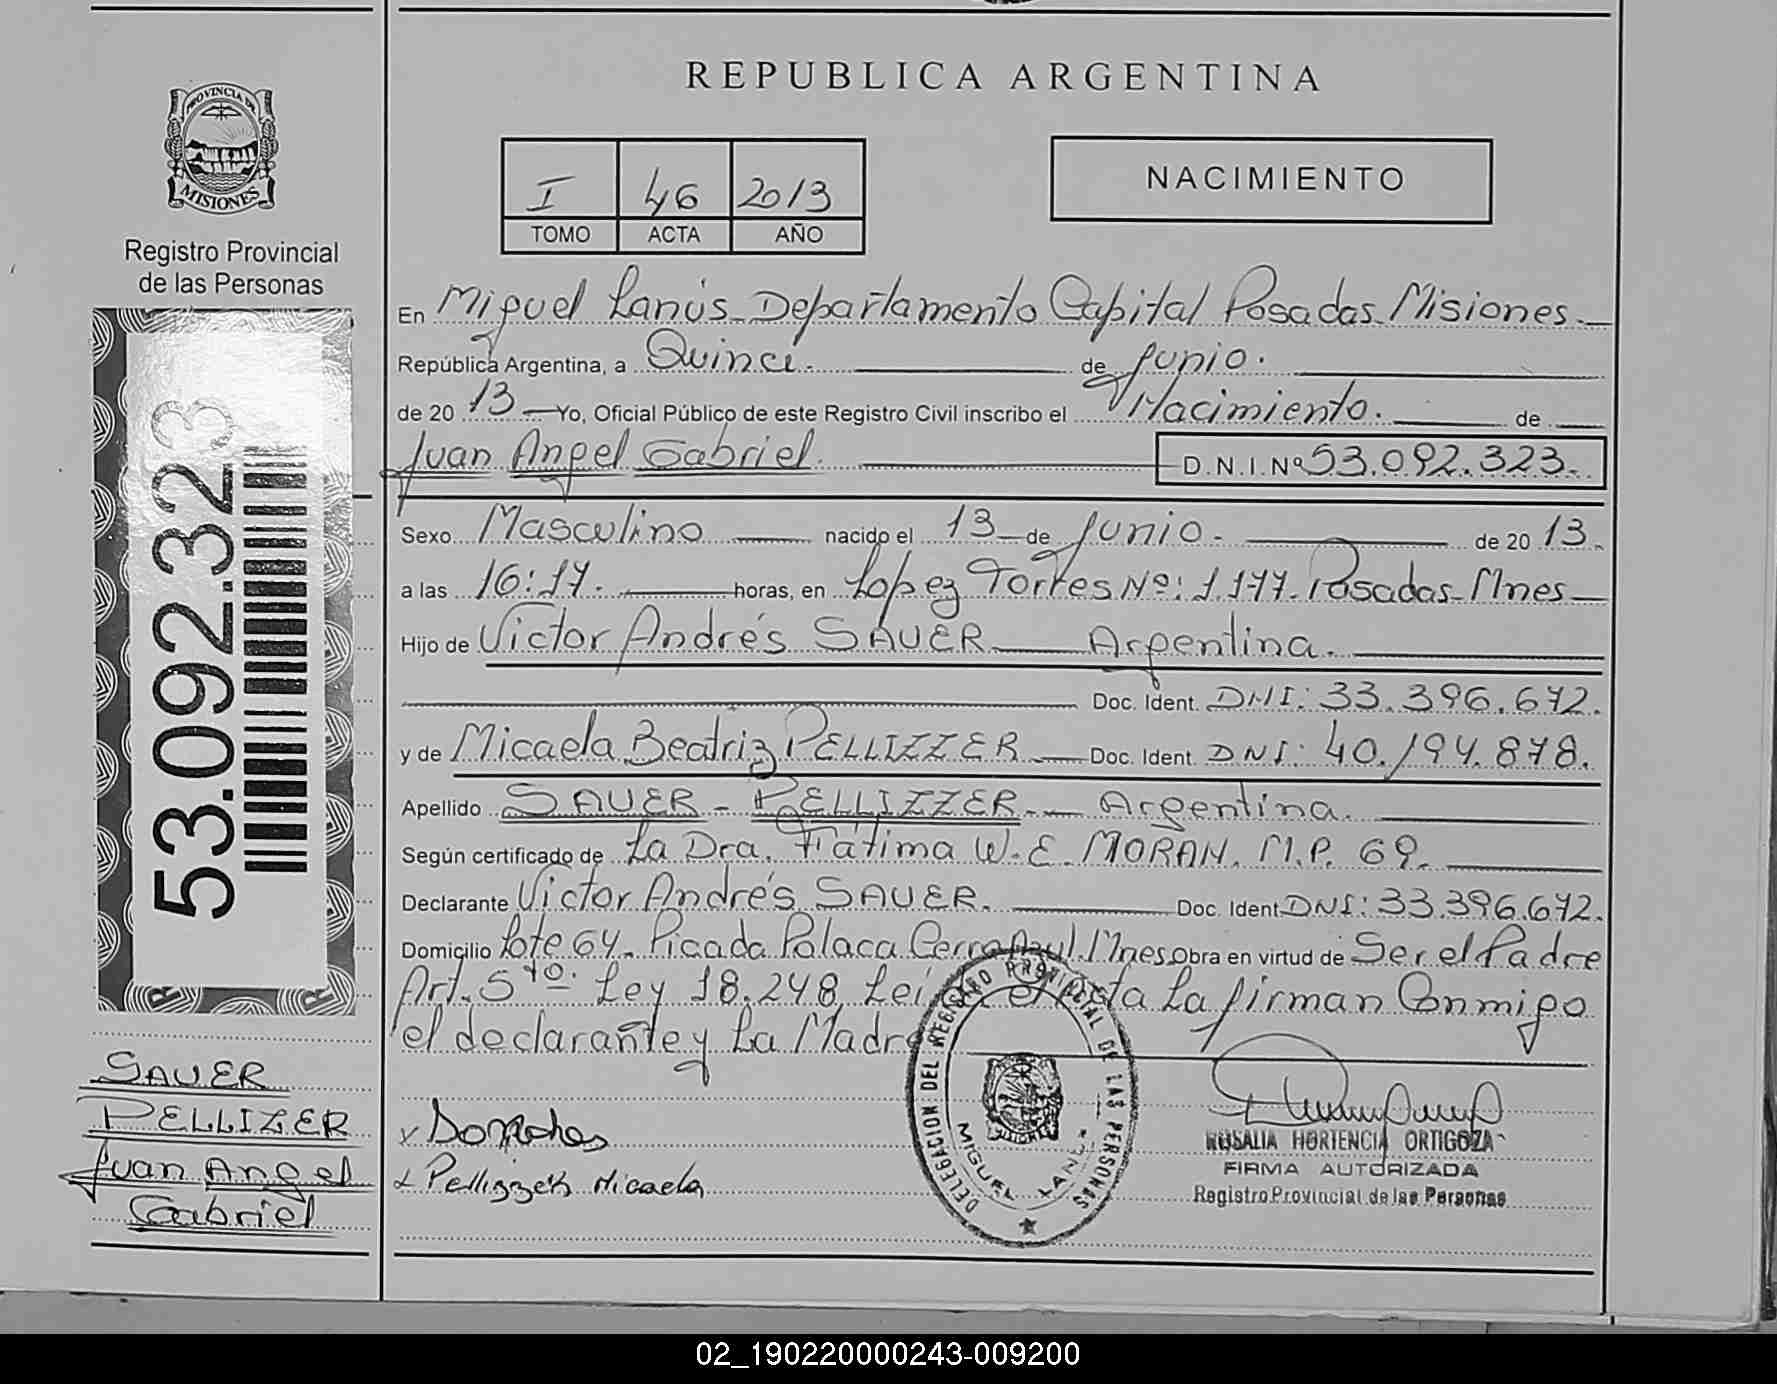 REPUBLICA ARGENTINA
PROVINCIA DE
MISIONES
Registro Provincial
de las Personas
I 46 2013
TOMO ACTA AÑO
NACIMIENTO
En Miguel Lanús Departamento Capital Posadas Misiones.
República Argentina, a Quince. de Junio.
de 20 13 Yo, Oficial Público de este Registro Civil inscribo el Nacimiento. de
Juan Angel Gabriel. D.N.I.Nº 53.092.323.
Sexo Masculino nacido el 13 de Junio. de 20 13.
a las 16:17. horas, en Lopez Torres Nº: 1.177. Posadas-Mnes
Hijo de Victor Andrés SAUER Argentina.
Doc. Ident. DNI: 33.396.672.
y de Micaela Beatriz PELLIZZER Doc. Ident. DNI: 40.194.878.
Apellido SAUER - PELLIZZER. Argentina.
Según certificado de La Dra. Fátima W.E. MORAN. M.P. 69.
Declarante Victor Andrés SAUER. Doc. Ident DNI: 33.396.672.
Domicilio Lote 64. Picada Polaca Cerro Azul. Mnes obra en virtud de Ser el Padre
Art. 5to. Ley 18.248 Leída el Acta La firman Conmigo
el declarante y La Madre
53.092.323
SAUER
PELLIZER
Juan Angel
Gabriel
x
x Pellizzer Micaela
DELEGACION DEL REGISTRO PROVINCIAL DE LAS PERSONAS
MISIONES
MIGUEL LANUS
ROSALIA HORTENCIA ORTIGOZA
FIRMA AUTORIZADA
Registro Provincial de las Personas
02_190220000243-009200